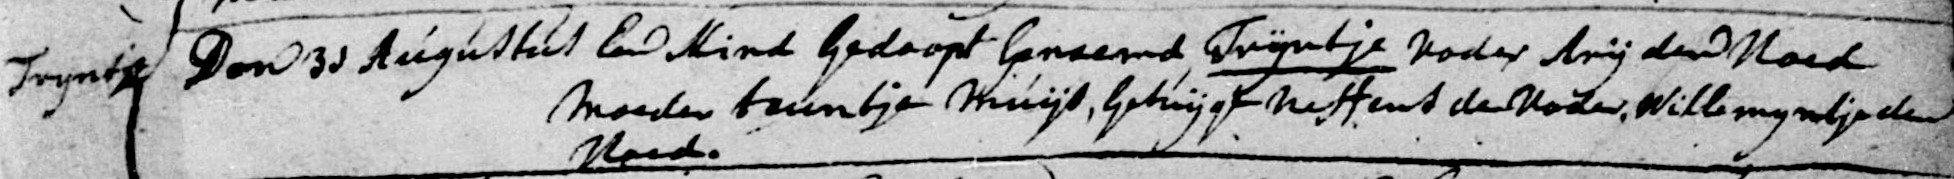 Tryntje
Den 31 Augustus Een Kind Gedoopt Genaemd Trijntje Vader Arij den Hoed
Moeder teuntje Muijs, Getuijge Neffens de Vader, Willemyntje den
Hoed.